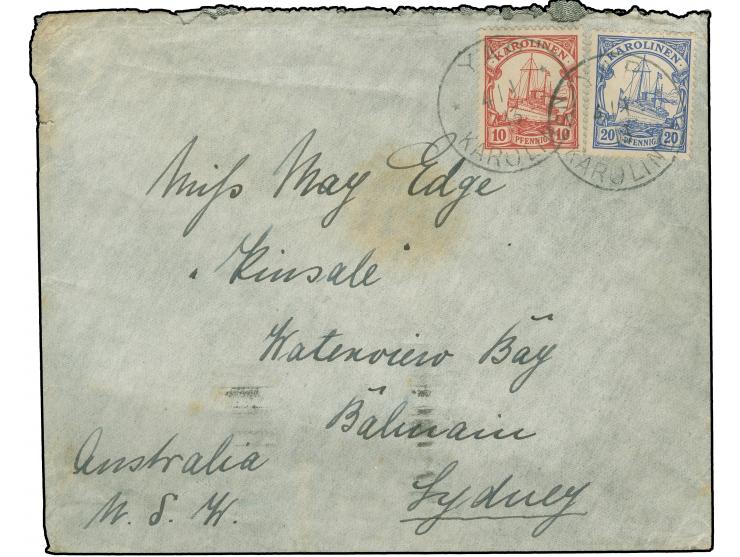 KAROLINEN
10 PFENNIG 10
KAROLINEN
20 PFENNIG 20
KAROLINEN
KAROLINEN
Miss May Edge
"Kinsale"
Waterview Bay
Balmain
Sydney
Australia
N. S. W.